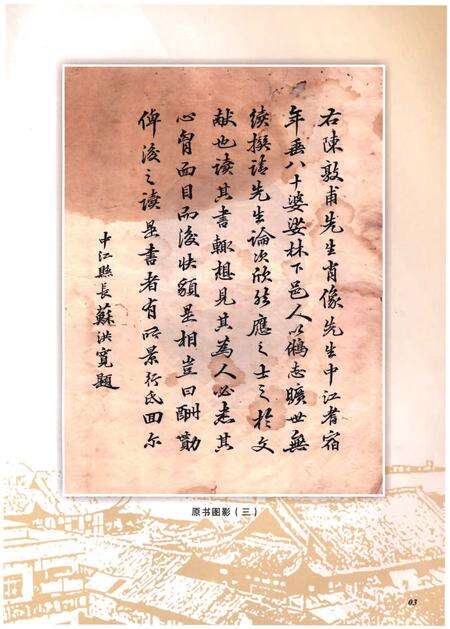 右陳敦甫先生肖像先生中江耆宿
年垂八十婆娑林下邑人以縣志曠世無
續撰請先生論次欣然應之士之於文
献也讀其書輒想見其為人必悉其
心胷面目而後快額是相豈曰酬勩
俾後之讀是書者有所景行氏回尔
中江縣長蘇洪寬題
原书图影（三）
03